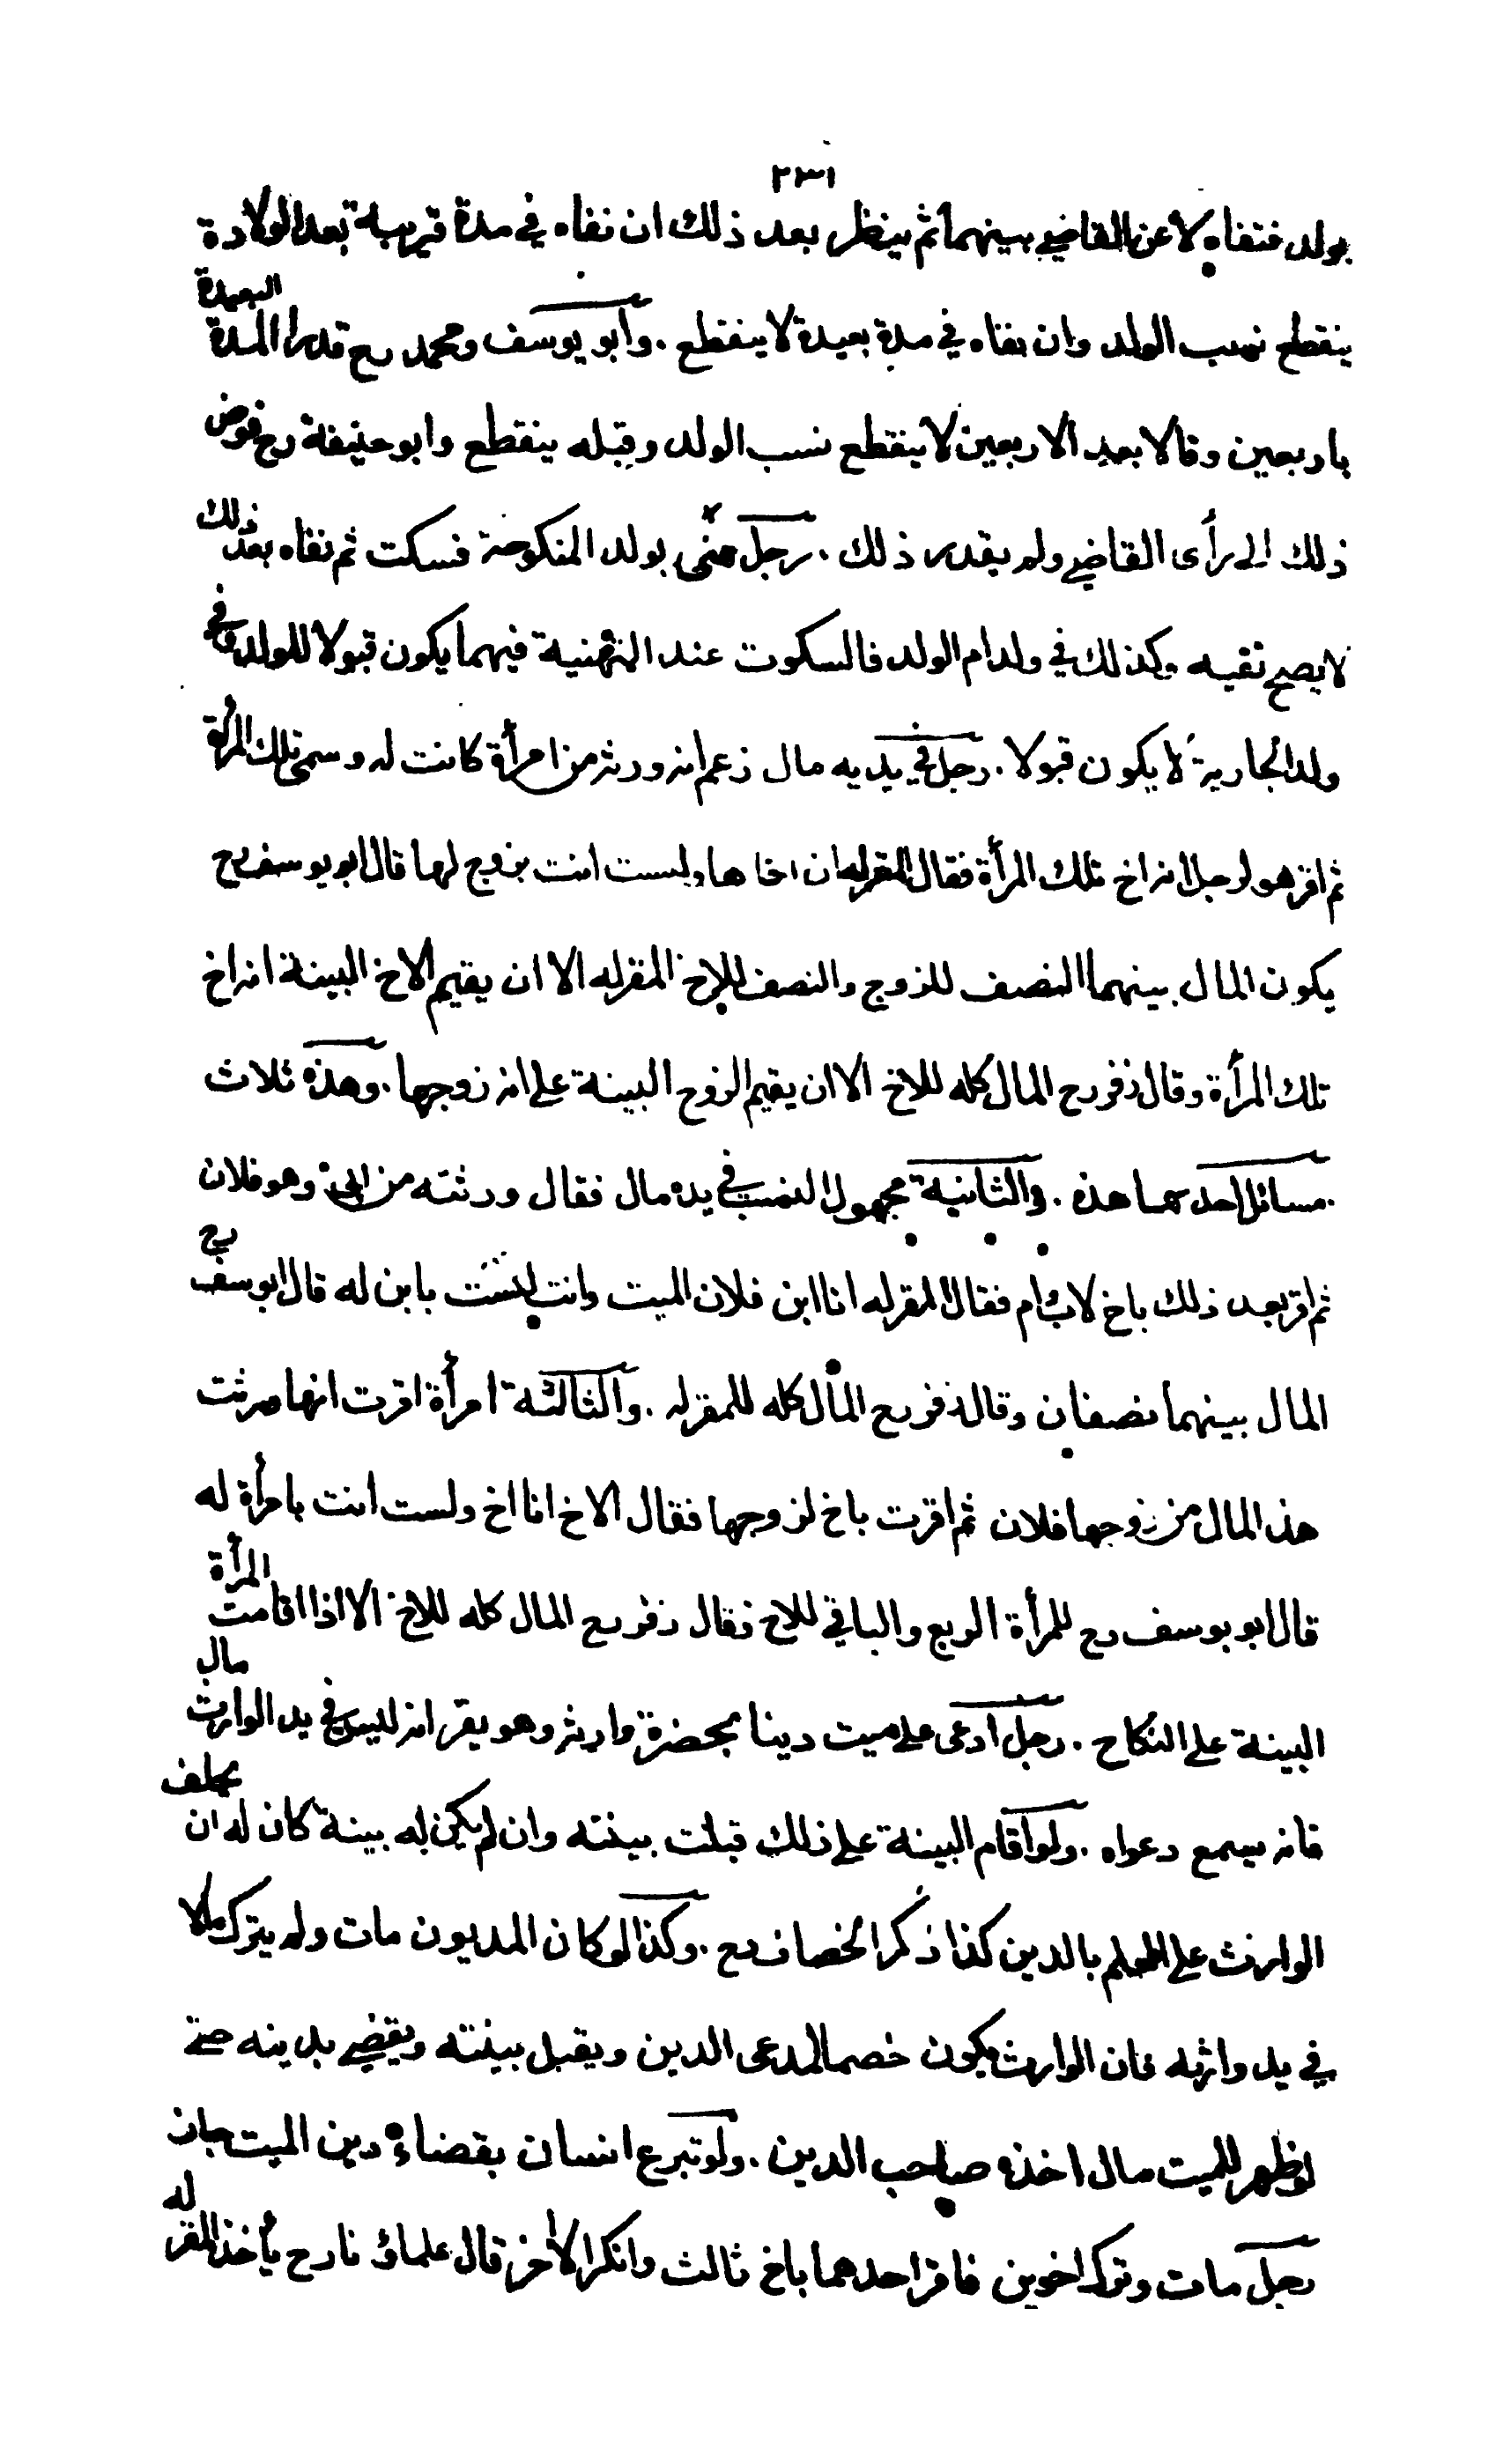 ٢٣١
بولد فنفاه لاعن القاضي بينهما ثم ينظر بعد ذلك ان نفاه في مدة قريبة بعد الولادة
ينقطع نسب الولد وان نفاه في مدة بعيدة لا ينقطع . وأبو يوسف ومحمد رح قدرا المدة البعيدة
باربعين وقالا بعد الاربعين لا ينقطع نسب الولد وقبله ينقطع وابو حنيفة رح فوض
ذلك الى رأى القاضي ولم يقدر ذلك . رجل هنى بولد المنكوحة فسكت ثم نفاه بعد ذلك
لا يصح نفيه وكذلك في ولد ام الولد فالسكوت عند التهنية فيهما يكون قبولا للولد وفي
ولد الجارية لا يكون قبولا . رجل في يديه مال زعم انه ورثه من امرأة كانت له وسمى تلك المرأة
ثم اقر هو لرجل انه اخ تلك المرأة فقال المقر له ان اخاها وليست انت بزوج لها قال ابو يوسف رح
يكون المال بينهما النصف للزوج والنصف للاخ المقر له الا ان يقيم الاخ البينة انه اخ
تلك المرأة وقال زفر رح المال كله للاخ الا ان يقيم الزوج البينة على انه زوجها . وهذه ثلاث
مسائل احدهما هذه . والثانية مجهول النسب في يده مال فقال ورثته من ابي وهو فلان
ثم اقر بعد ذلك باخ لاب وام فقال المقر له انا ابن فلان الميت وانت لست بابن له قال ابو يوسف رح
المال بينهما نصفان وقال زفر رح المال كله للمقر له . والثالثة امرأة اقرت انها ورثت
هذا المال من زوجها فلان ثم اقرت باخ لزوجها فقال الاخ انا اخ ولست انت بامرأة له
قال ابو يوسف رح للمرأة الربع والباقي للاخ وقال زفر رح المال كله للاخ الا اذا اقامت المرأة
البينة على النكاح . رجل ادعى على ميت دينا بحضرة وارثه وهو يقر انه ليس في يد الوارث مال
فانه يسمع دعواه . ولو اقام البينة على ذلك قبلت بينته وان لم يكن له بينة كان له ان يحلف
الوارث على العلم بالدين كذا ذكر الخصاف رح . وكذا لو كان المديون مات ولم يترك مالا
في يد وارثه فان الوارث يكون خصما لمدعى الدين ويقبل بينته ويقضي بدينه حتى
لو ظهر للميت مال اخذه صاحب الدين . ولو تبرع انسان بقضاء دين الميت جاز
رجل مات وترك اخوين فاقر احدهما باخ ثالث وانكر الاخر قال علماؤنا رح يأخذ المقر له